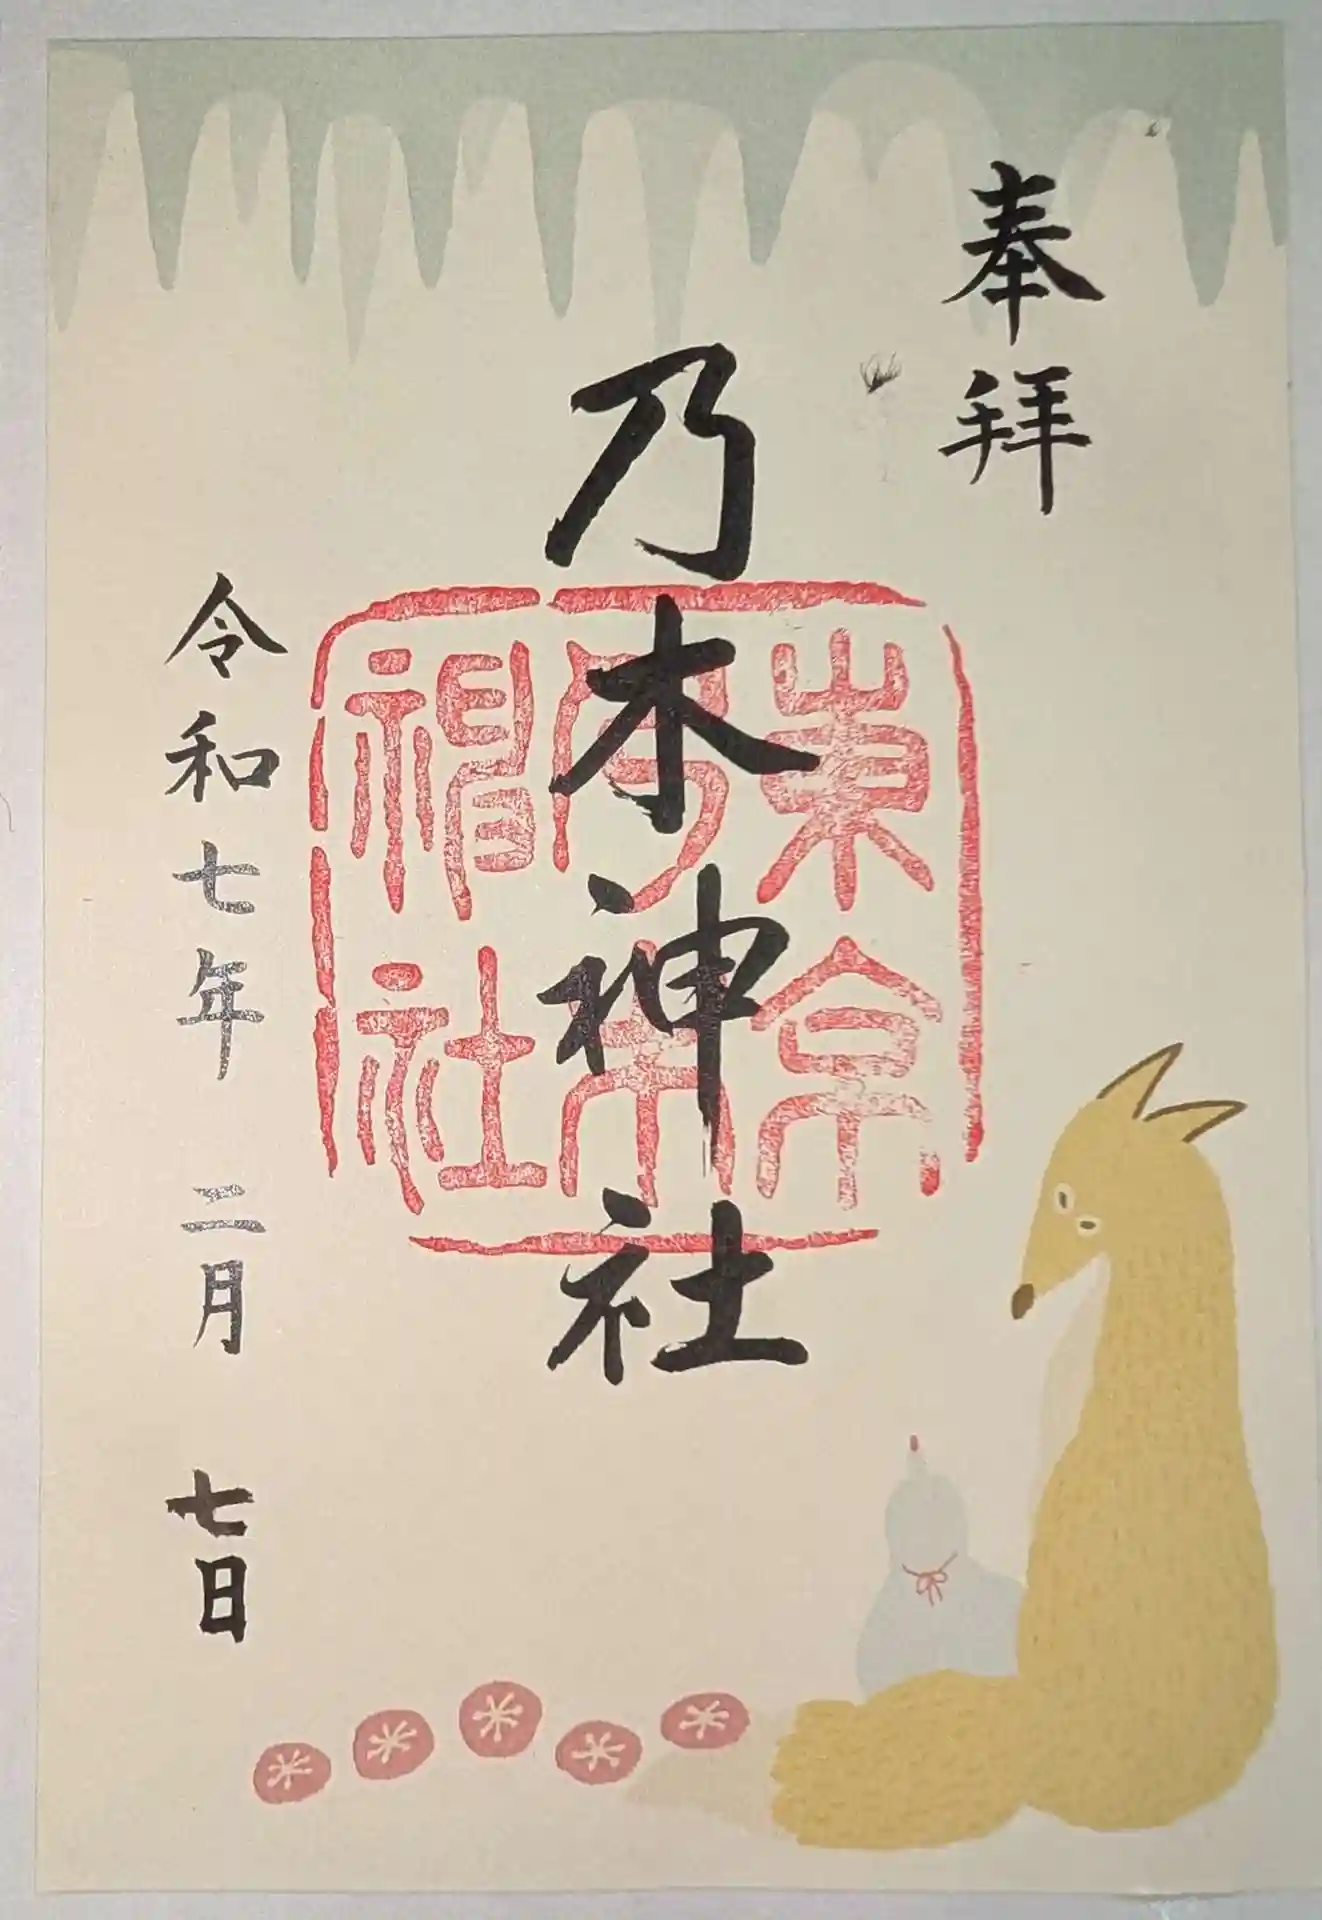 奉拝
乃木神社
東京
乃木
神社
令和七年二月七日